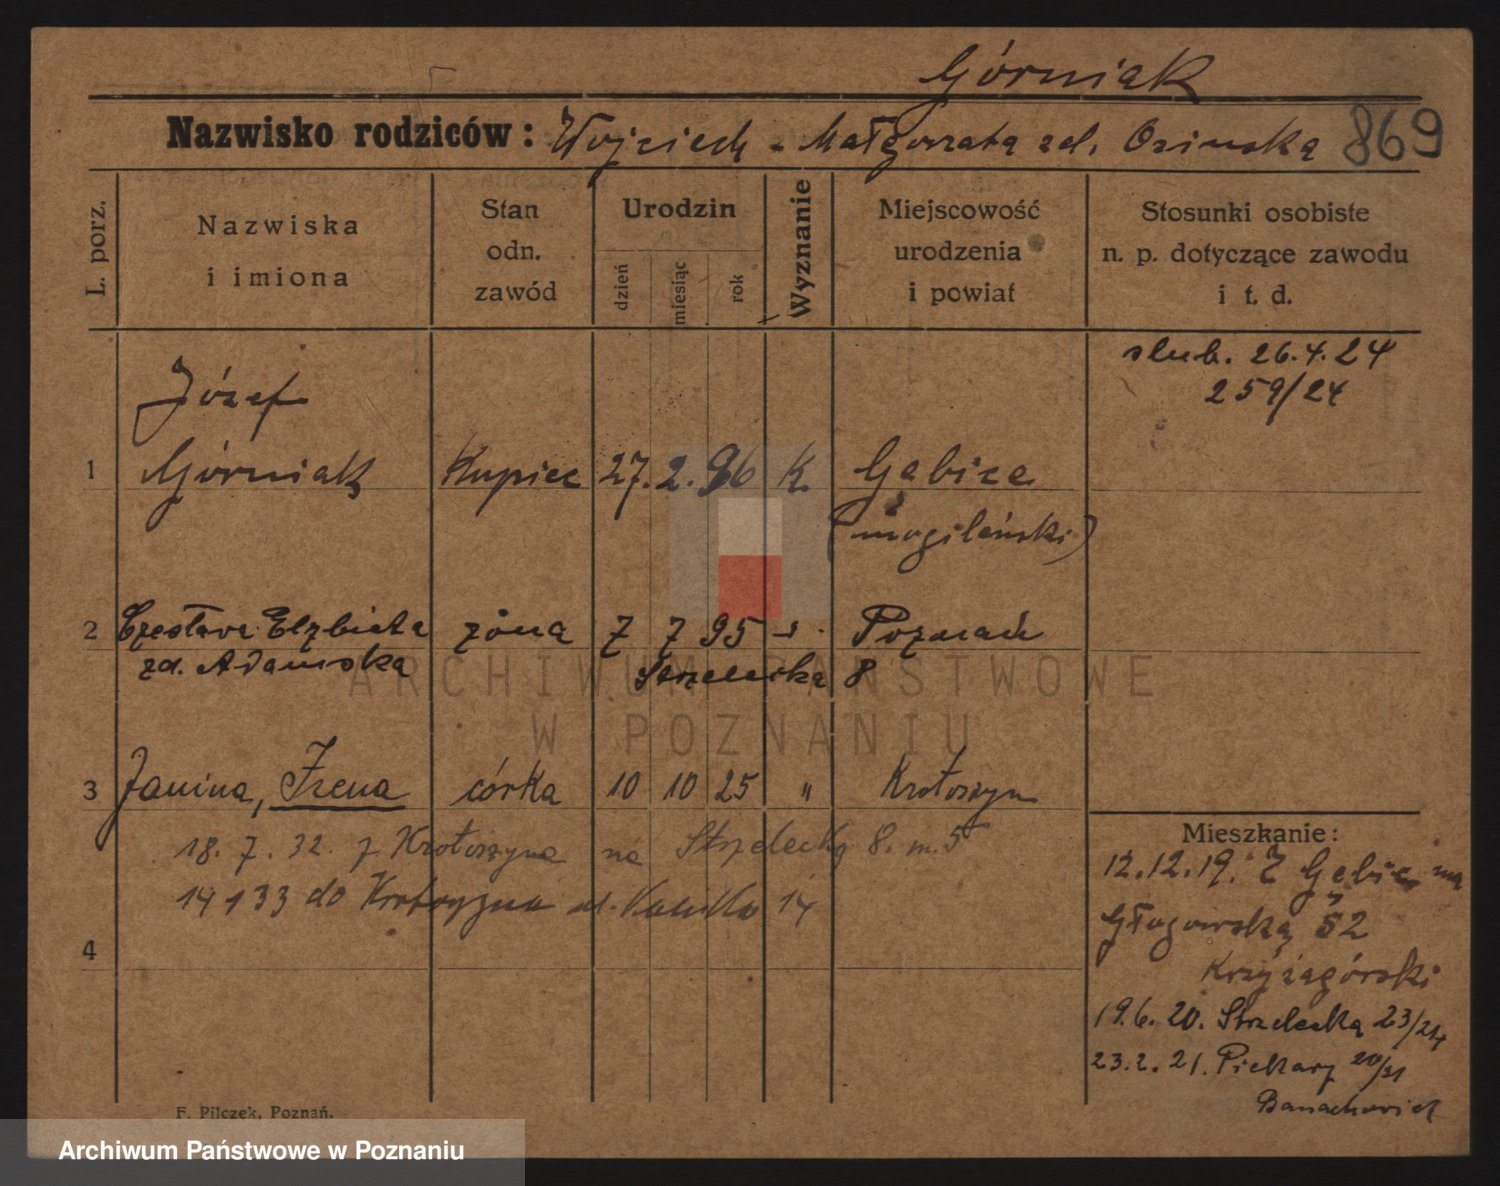 Górniak
Nazwisko rodziców: Wojciech - Małgorzata zd. Osinska 869
L. porz.
Nazwiska
i imiona
Stan
odn.
zawód
Urodzin
dzień
miesiąc
rok
Wyznanie
Miejscowość
urodzenia
i powiat
Stosunki osobiste
n. p. dotyczące zawodu
i t. d.
slub. 26.4.24
259/24
Józef
1 Górniak Kupiec 27. 2. 96 K. Gębice
(mogileński)
2 Czesława Elżbieta żona 7 7 95 Poznań
zd. Adamska Strzelecka 8
3 Janina, Irena córka 10 10 25 " Krotoszyn
18. 7. 32. z Krotoszyna na Strzelecką 8. m. 5
14 1 33 do Krotoszyna ul. 14
4
Mieszkanie:
12.12.19. Z Gębic na
Głogowską 52
Krzyżagórski
19.6.20. Strzelecka 23/24
23.2.21. Piekary 20/21
Banachowicz
F. Pilczek, Poznań.
ARCHIWUM PAŃSTWOWE
W POZNANIU
Archiwum Państwowe w Poznaniu